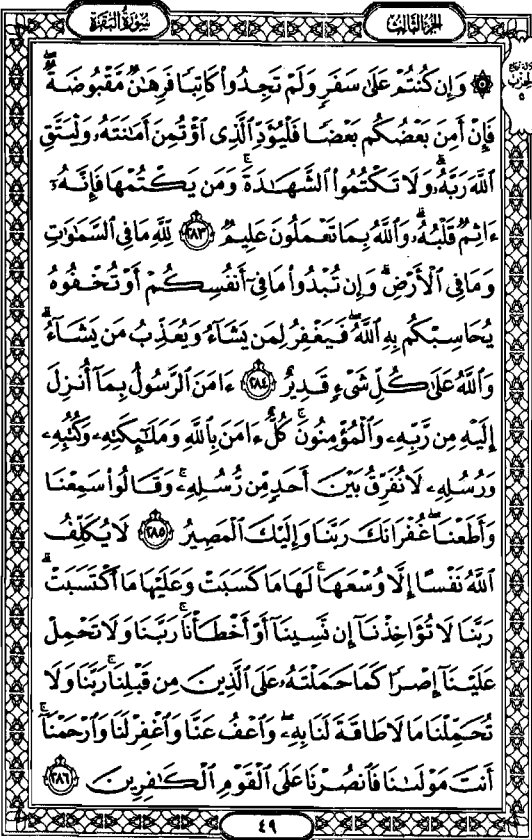 سُورَةُ البَقَرَةِ
الجزء الثالث
۞ وَإِن كُنتُمْ عَلَىٰ سَفَرٍ وَلَمْ تَجِدُوا۟ كَاتِبًا فَرِهَٰنٌ مَّقْبُوضَةٌ ۖ
فَإِنْ أَمِنَ بَعْضُكُم بَعْضًا فَلْيُؤَدِّ ٱلَّذِى ٱؤْتُمِنَ أَمَٰنَتَهُۥ وَلْيَتَّقِ
ٱللَّهَ رَبَّهُۥ ۗ وَلَا تَكْتُمُوا۟ ٱلشَّهَٰدَةَ ۚ وَمَن يَكْتُمْهَا فَإِنَّهُۥٓ
ءَاثِمٌ قَلْبُهُۥ ۗ وَٱللَّهُ بِمَا تَعْمَلُونَ عَلِيمٌ ﴿٢٨٣﴾ لِّلَّهِ مَا فِى ٱلسَّمَٰوَٰتِ
وَمَا فِى ٱلْأَرْضِ ۗ وَإِن تُبْدُوا۟ مَا فِىٓ أَنفُسِكُمْ أَوْ تُخْفُوهُ
يُحَاسِبْكُم بِهِ ٱللَّهُ ۖ فَيَغْفِرُ لِمَن يَشَآءُ وَيُعَذِّبُ مَن يَشَآءُ ۗ
وَٱللَّهُ عَلَىٰ كُلِّ شَىْءٍ قَدِيرٌ ﴿٢٨٤﴾ ءَامَنَ ٱلرَّسُولُ بِمَآ أُنزِلَ
إِلَيْهِ مِن رَّبِّهِۦ وَٱلْمُؤْمِنُونَ ۚ كُلٌّ ءَامَنَ بِٱللَّهِ وَمَلَٰٓئِكَتِهِۦ وَكُتُبِهِۦ
وَرُسُلِهِۦ لَا نُفَرِّقُ بَيْنَ أَحَدٍ مِّن رُّسُلِهِۦ ۚ وَقَالُوا۟ سَمِعْنَا
وَأَطَعْنَا ۖ غُفْرَانَكَ رَبَّنَا وَإِلَيْكَ ٱلْمَصِيرُ ﴿٢٨٥﴾ لَا يُكَلِّفُ
ٱللَّهُ نَفْسًا إِلَّا وُسْعَهَا ۚ لَهَا مَا كَسَبَتْ وَعَلَيْهَا مَا ٱكْتَسَبَتْ ۗ
رَبَّنَا لَا تُؤَاخِذْنَآ إِن نَّسِينَآ أَوْ أَخْطَأْنَا ۚ رَبَّنَا وَلَا تَحْمِلْ
عَلَيْنَآ إِصْرًا كَمَا حَمَلْتَهُۥ عَلَى ٱلَّذِينَ مِن قَبْلِنَا ۚ رَبَّنَا وَلَا
تُحَمِّلْنَا مَا لَا طَاقَةَ لَنَا بِهِۦ ۖ وَٱعْفُ عَنَّا وَٱغْفِرْ لَنَا وَٱرْحَمْنَآ ۚ
أَنتَ مَوْلَىٰنَا فَٱنصُرْنَا عَلَى ٱلْقَوْمِ ٱلْكَٰفِرِينَ ﴿٢٨٦﴾
٤٩